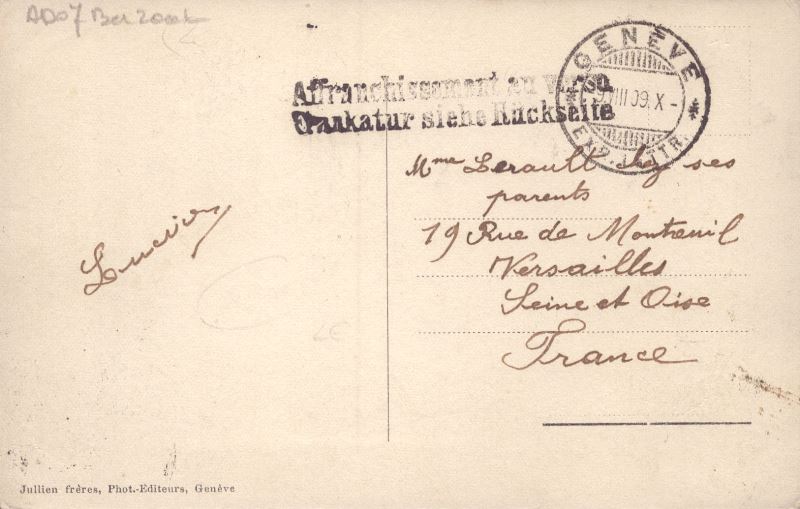 Affranchissement au verso
Frankatur siehe Rückseite
GENÈVE
VIII 09. X -
EXP. LETTR.
Mme Lerault chez ses
parents
19 Rue de Montreuil
Versailles
Seine et Oise
France
Lucien
Jullien frères, Phot.-Editeurs, Genève